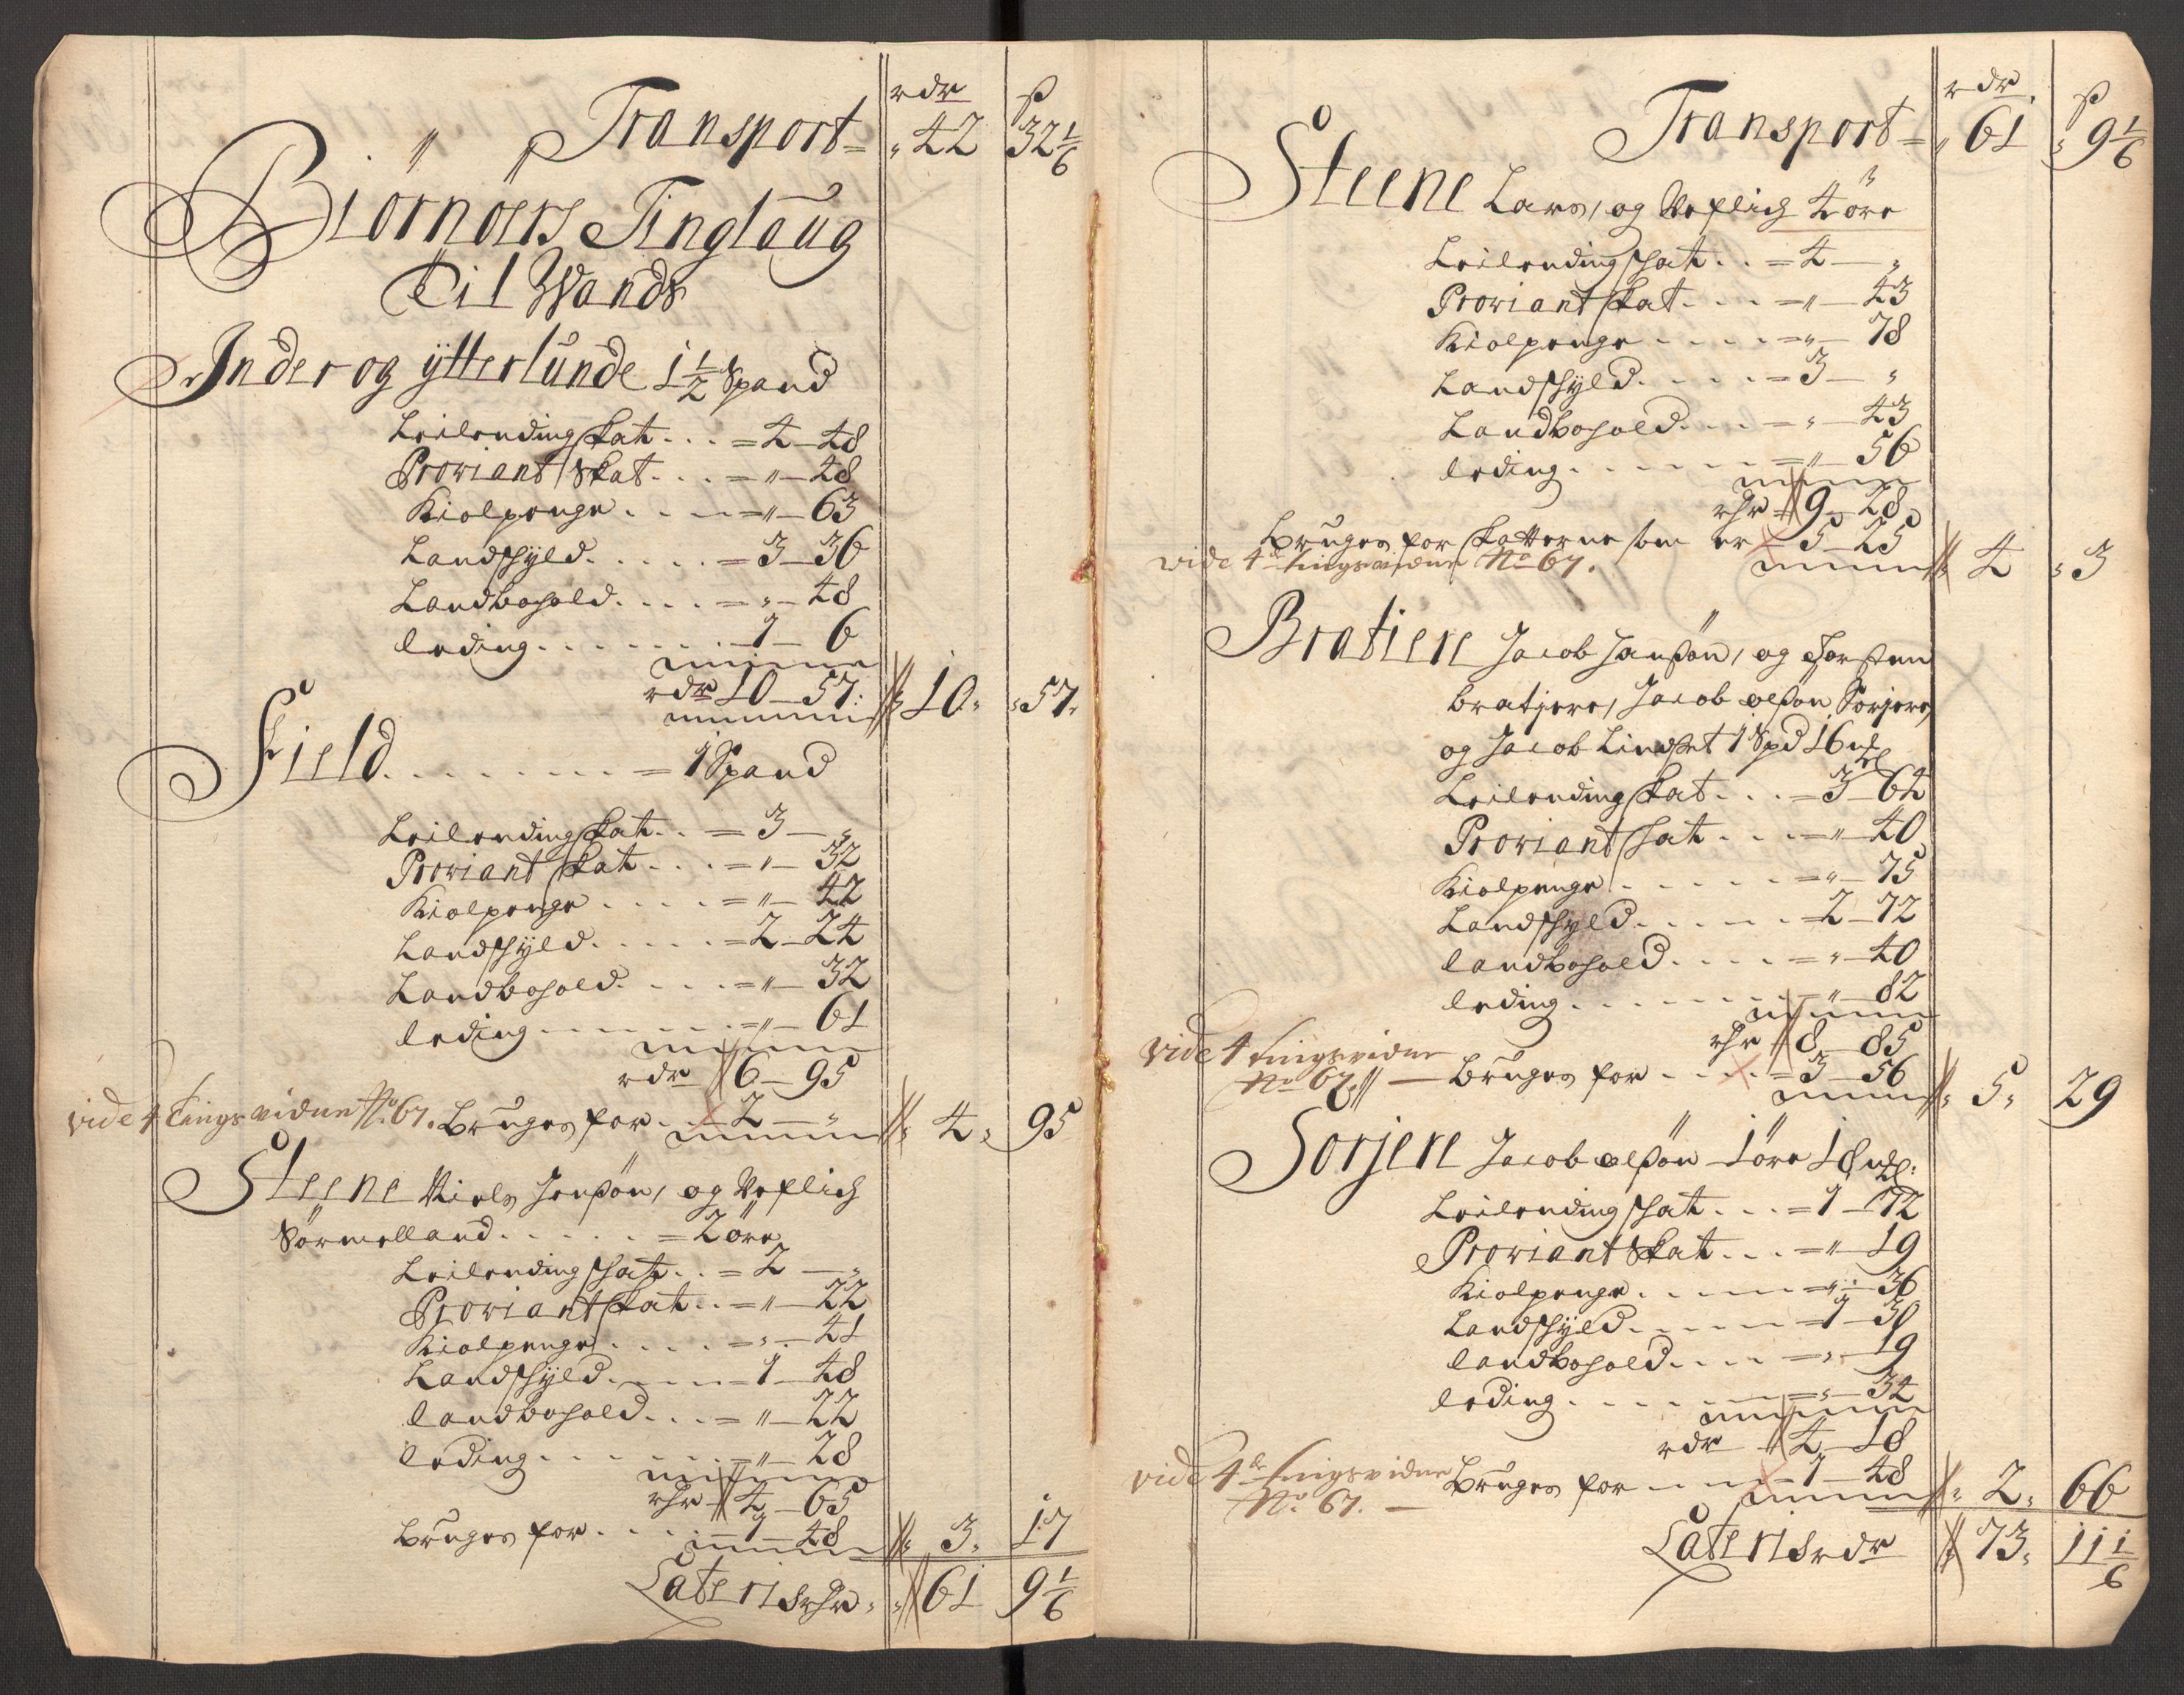 rdr ß
Transport = 42 32 1/6
Biørnørs Tinglaug
Til Wands
Inder og ytterlunde 1 1/2 Spand
Leilending Skat . . . = 4 – 48
Proviant Skat . . . = " – 48
Kiolpenge . . . = " – 63
Landskyld . . . . . = 3 – 36
Landbohold . . . . = " – 48
leding . . . . . . . 1 – 6
rdr 10 – 57: 10 " 57
Field . . . . . . . . = 1 Spand
Leilending Skat . . = 3 – "
Proviant Skat . . . = " – 32
Kiolpenge . . . . = " – 42
Landskyld . . . . . = 2 – 24
Landbohold . . . . = " – 32
leding . . . . . . = " – 61
rdr 6 – 95
vide 4 tingsvidne No 67. bruges for . . 2 – " 4 " 95
Steene Niels Jenßøn, og Veflich
Sørmelland . . . . . = 2 øre
Leilending skat . . = 2 – "
Proviant skat . . = " – 22
Kiolpenge . . . . . = " – 41
Landskyld . . . . = 1 – 48
landbohold . . . = " – 22
leding . . . . . . = " – 28
rdr 4 – 65
bruges for . . . . 1 – 48 3 " 17
Lateris rdr " 61 9 1/6
rdr. ß
Transport = 61 " 9 1/6
Steene Lars, og Veflich 4 øre
Leilending skat . . = 4 – "
Proviant Skat . . . = " – 43
Kiolpenge . . . . . = " – 78
Landskyld . . . . = 3 – "
Landbohold . . . . = " – 43
leding . . . . . . = " – 56
rdr 9 – 28
bruges for skatterne som er 5 – 25 4 " 3
vide 4de tingsvidne No 67.
Bratiere Jacob Janßøn, og Torsten
bratjere, Jacob olßøn Sorjere,
og Jacob Lindset 1 Spd 16 mkl
Leilending Skat . . . = 3 – 64
Proviant skat . . . = " – 40
Kiolpenge . . . . . = " – 75
Landskyld . . . . . = 2 – 72
landbohold . . . . = " – 40
leding . . . . . . = " – 82
rdr 8 – 85
vide 4 tingsvidne
No 67. – bruges for . . . . = 3 – 56 5 " 29
Sorjere Jacob olßøn 1 øre 18 mkl:
Leilending skat . . . = 1 – 72
Proviant Skat . . . = " – 19
Kiolpenge . . . . . = " – 36
Landskyld . . . . . = 1 – 30
landbohold . . . . = " – 19
leding . . . . . . = " – 34
rdr 4 – 18
vide 4de tingsvidne bruges for . . . = 1 – 48 " 2 " 66
No. 67. –
Lateris rdr 73 " 11 1/6